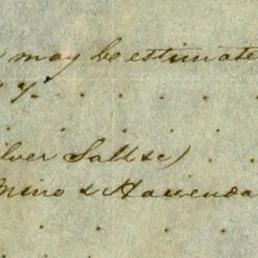 may be estimate
y.
lver Salt &c)
Mino & Hacienda